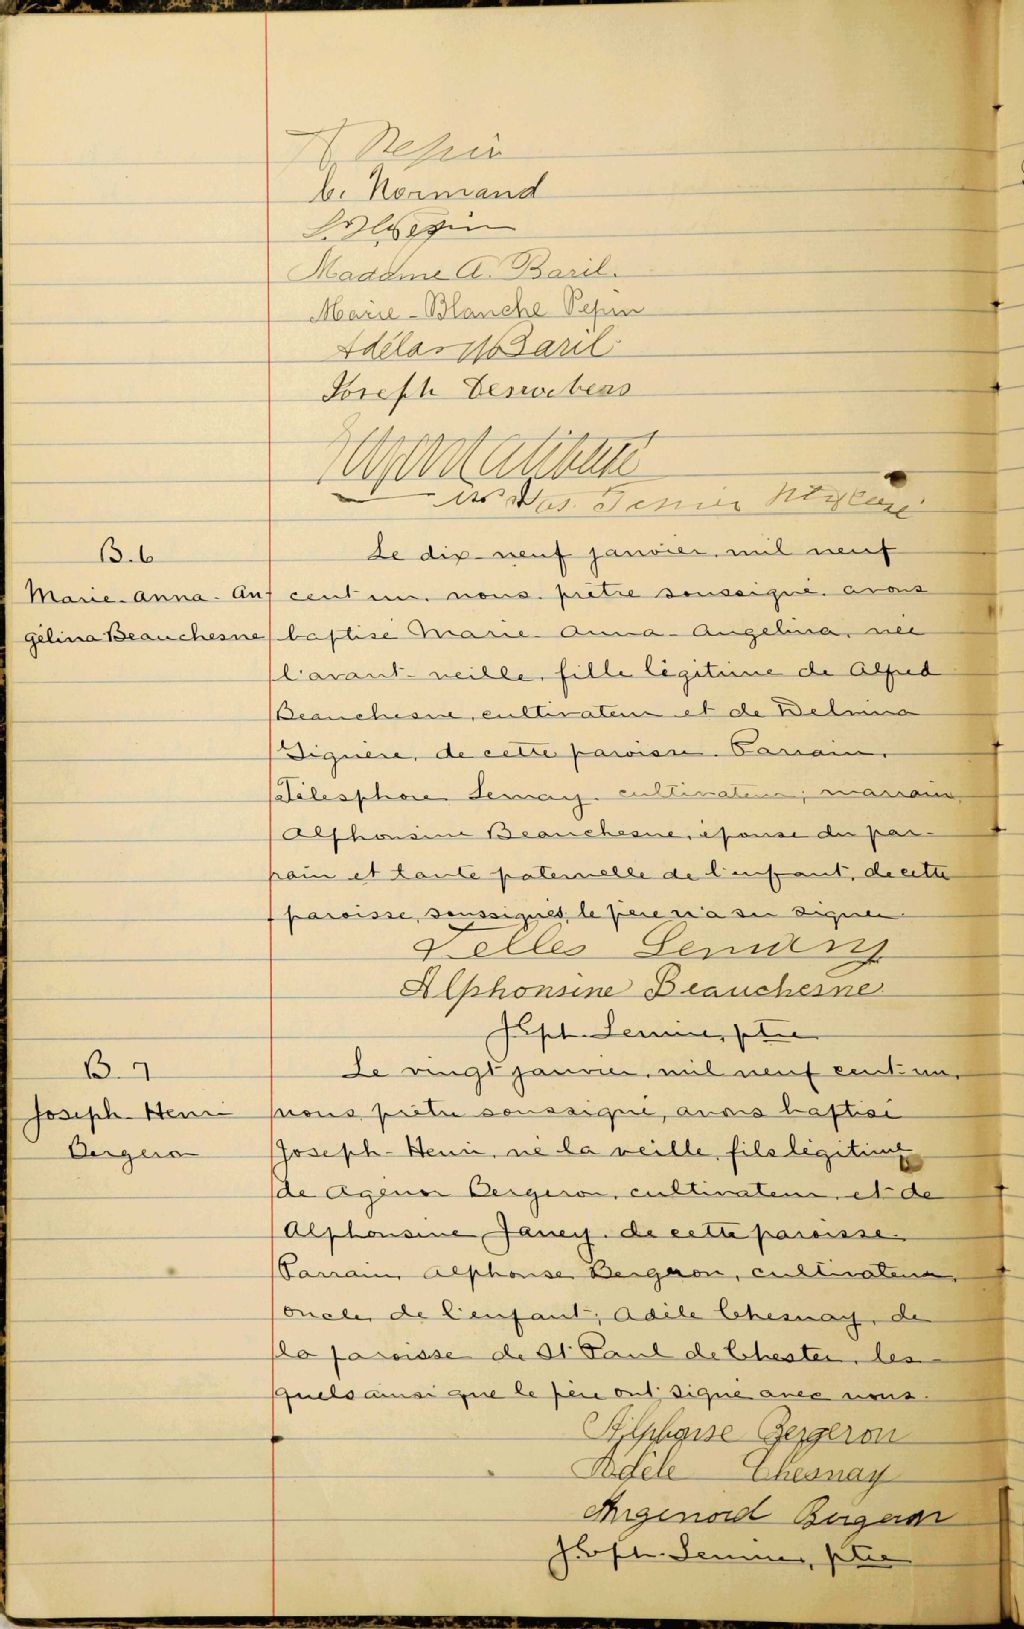 A Pepin
C. Normand
Pepin
Madame A. Baril.
Marie-Blanche Pepin
Adélard Baril
Joseph Desrochers
Jos. Tessier
B. 6
Marie-Anna-An-
gélina Beauchesne
Le dix-neuf janvier, mil neuf
cent un, nous, prêtre soussigné, avons
baptisé Marie-Anna-Angelina, née
l'avant-veille, fille légitime de Alfred
Beauchesne, cultivateur et de Delvina
Giguère, de cette paroisse. Parrain,
Télesphore Lemay, cultivateur; marraine,
Alphonsine Beauchesne, épouse du par-
rain et tante paternelle de l'enfant, de cette
paroisse, soussignés, le père n'a su signer.
Telles Lemay
Alphonsine Beauchesne
J. Eph. Lemire, ptre
B. 7
Joseph-Henri
Bergeron
Le vingt janvier, mil neuf cent-un,
nous, prêtre soussigné, avons baptisé
Joseph-Henri, né la veille, fils légitime
de Agénor Bergeron, cultivateur, et de
Alphonsine Janey, de cette paroisse.
Parrain, Alphonse Bergeron, cultivateur,
oncle de l'enfant; Adèle Chesnay, de
la paroisse de St Paul de Chester, les-
quels ainsi que le père ont signé avec nous.
Alphonse Bergeron
Adèle Chesnay
Argenord Bergeron
J. Eph. Lemire, ptre